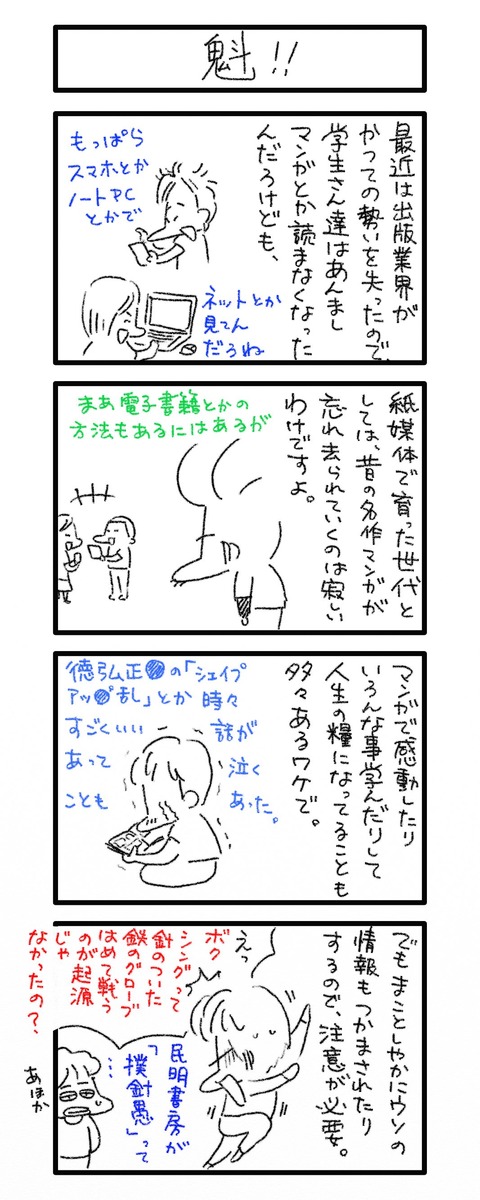 魁!!
最近は出版業界が
かつての勢いを失ったので、
学生さん達はあんまし
マンガとか読まなくなった
んだろけども、
もっぱら
スマホとか
ノートPC
とかで
ネットとか
見てん
だろね
紙媒体で育った世代と
しては、昔の名作マンガが
忘れ去られていくのは寂しい
わけですよ。
まあ電子書籍とかの
方法もあるにはあるが
マンガで感動したり
いろんな事学んだりして
人生の糧になってることも
多々あるワケで。
徳弘正●の「シェイプ
アッ●乱」とか時々
すごくいい話が
あって泣く
こともあった。
でもまことしやかにウソの
情報もつかまされたり
するので、注意が必要。
えっ
ボク
シングって
針のついた
鉄のグローブ
はめて戦う
のが起源
じゃ
なかったの?、
民明書房が
「撲針愚」って
…
あほか